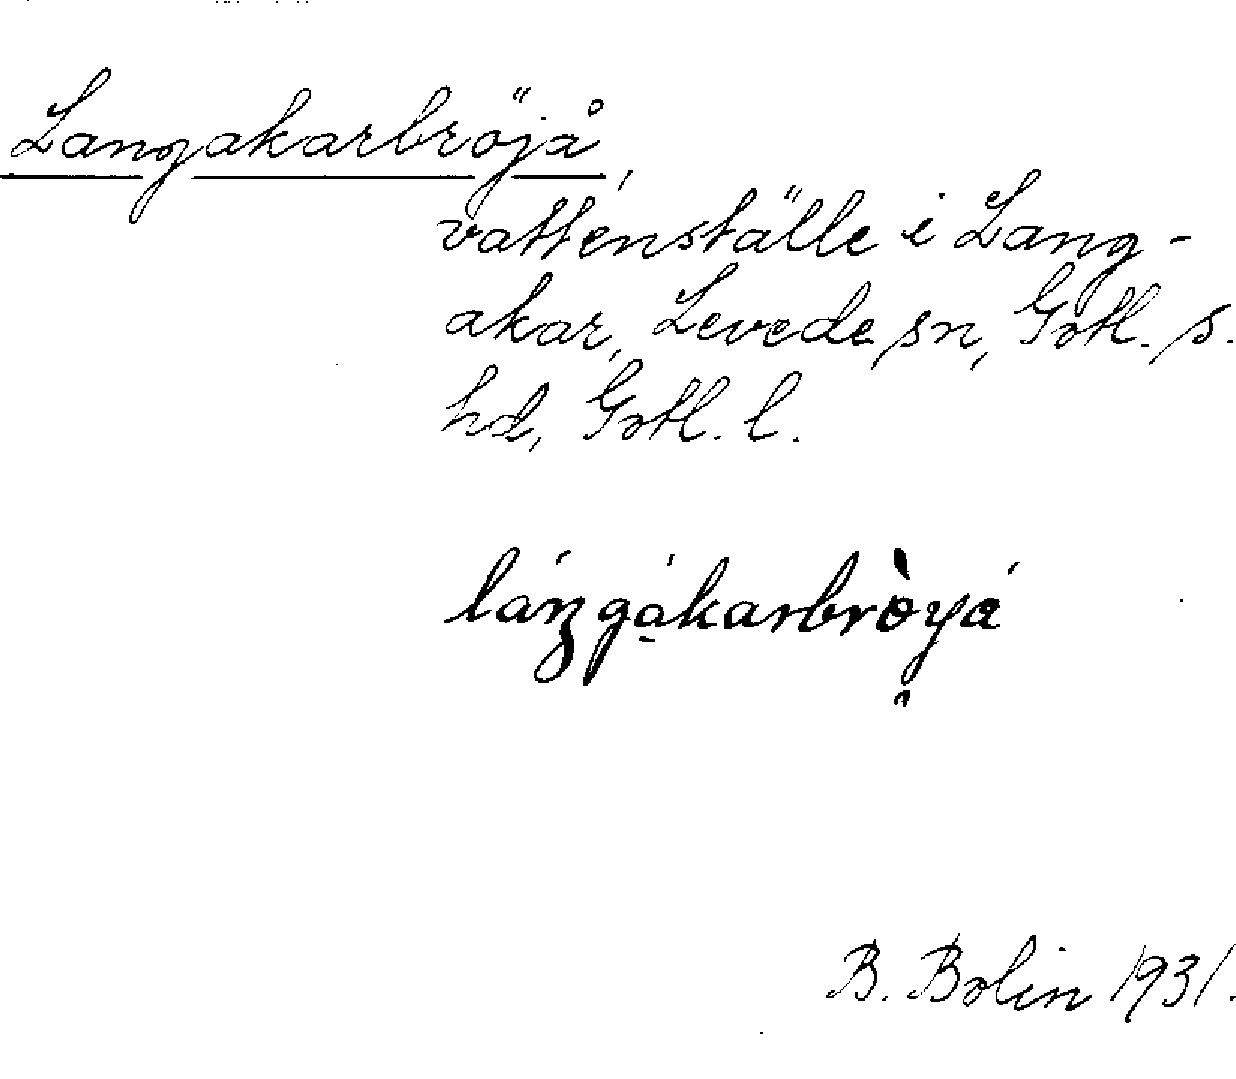 Langakarbröjå,
vattenställe i Lang-
akar, Levede sn, Gotl. s.
hd, Gotl. l.
B. Bolin 1931.